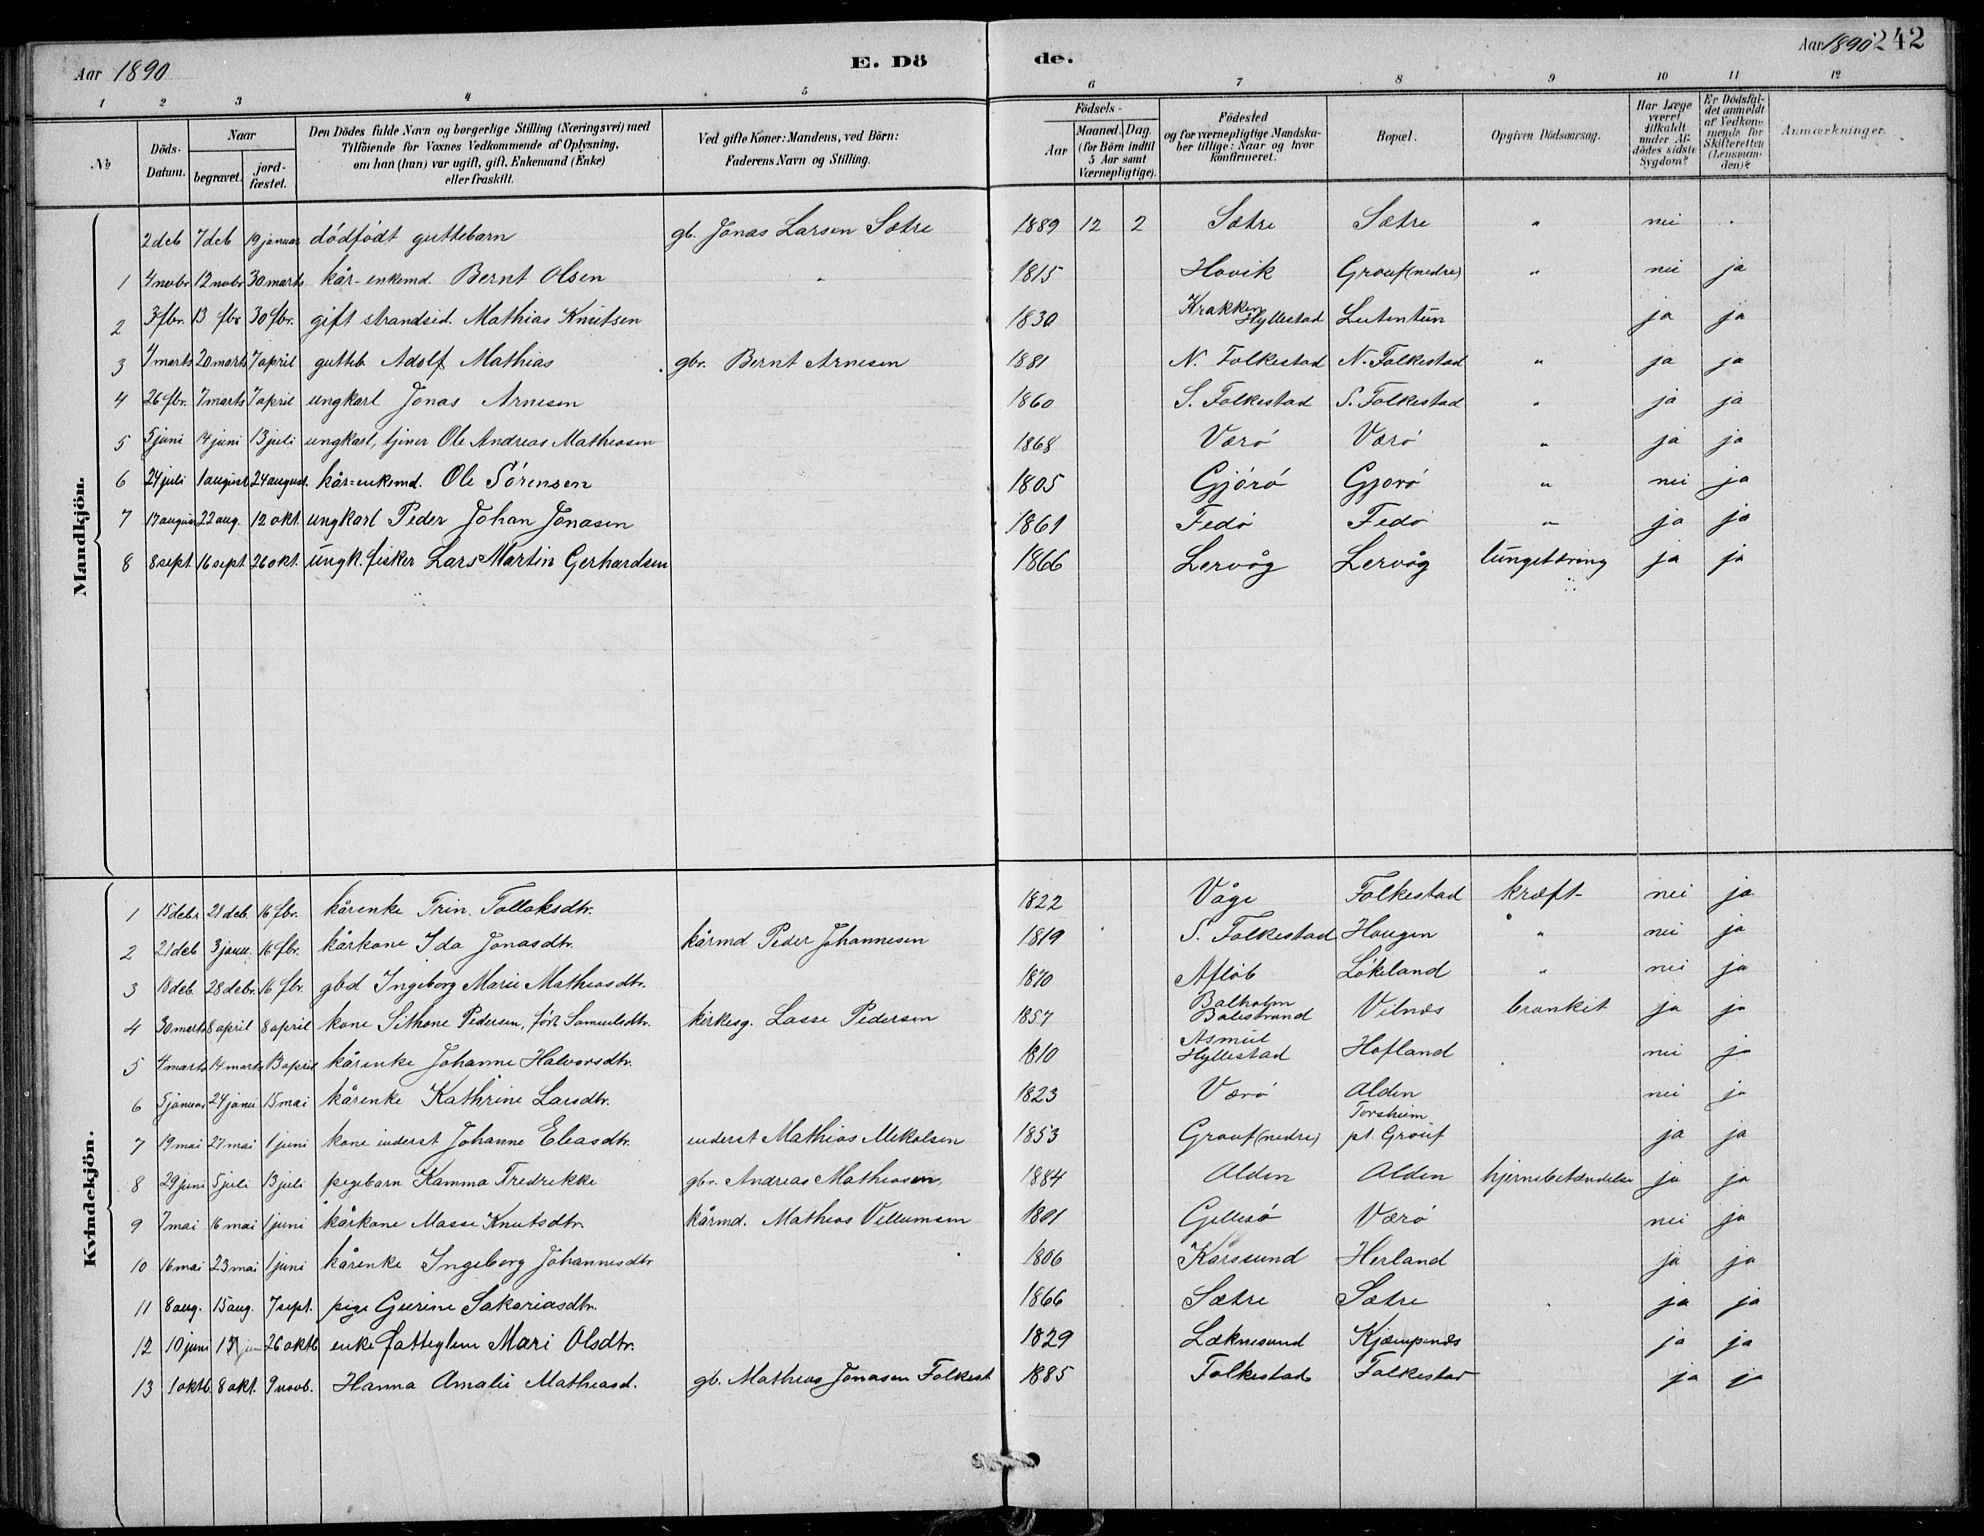 Aar 1890 E. Dö de. Aar 1890 242
1 2 3 4 5 6 7 8 9 10 11 12
№ Döds-Datum. Naar begravet. jord-fæstet. Den Dödes fulde Navn og borgerlige Stilling (Næringsvei) med Tilföiende for Voxnes Vedkommende af Oplysning, om han (hun) var ugift, gift, Enkemand (Enke) eller fraskilt. Ved gifte Koner: Mandens, ved Börn: Faderens Navn og Stilling. Födsels- Aar Maaned. Dag. (for Börn indtil 5 Aar samt Værnepligtige). Födested og for værnepligtige Mandska-ber tillige: Naar og hvor konfirmeret. Bopæl. Opgiven Dödsaarsag. Har Læge været tilkaldt under Af-dödes sidste Sygdom? Er Dödsfal-det anmeldt af Vedkom-mende for Skifteretten (Lensman-den)? Anmærkninger.
Mandkjön.
2 deb 7 deb 19 januar dödfödt guttebarn gb. Jonas Larsen Sætre 1889 12 2 Sætre Sætre " nei .
1 4 novbr 12 novbr 30 marts kår-enkemd. Bernt Olsen " 1815 Hovik Grouf (nedre) " nei ja
2 3 fbr. 13 fbr 30 fbr. gift strandsid. Mathias Knutsen 1830 Krakken Hyllestad Leitentun ja ja
3 4 marts 20 marts 7 april gutteb Adolf Mathias gbr. Bernt Arnesen 1881 N. Folkestad N. Folkestad " ja ja
4 26 fbr. 7 marts 7 april ungkarl Jonas Arnesen 1860 S. Folkestad S. Folkestad " ja ja
5 5 juni 14 juni 13 juli ungkarl, tjener Ole Andreas Mathiasen 1868 Værö Værö " ja ja
6 24 juli 1 august 24 august. kår-enkemd. Ole Sörensen 1805 Gjörö Gjörö " nei ja
7 17 august 22 aug. 12 okt. ungkarl Peder Johan Jonasen 1861 Fedö Fedö " ja ja
8 8 sept 16 sept 26 okt. ungk. fisker Lars Martin Gerhardsen 1866 Lervåg Lervåg lungetæring ja ja
Kvindekjön.
1 15 debr 21 deb. 16 fbr. kårenke Trin. Tollaksdtr. 1822 Våge Folkestad kræft nei ja
2 21 deb 3 januar 16 fbr. kårkone Ida Jonasdtr. kårmd Peder Johannesen 1819 S. Folkestad Hougen " nei ja
3 18 deb 28 debr. 16 fbr. gbd Ingeborg Marie Mathiasdtr. 1870 Aflöb Lökeland " nei ja
4 30 marts 8 april 8 april kone Sithone Pedersen, föd Samuelsdtr. kirkesg. Lasse Pedersen 1857 Balholm Balestrand Vilnæs bronkit ja ja
5 4 marts 14 marts 13 april kårenke Johanne Halvorsdtr. 1810 Asmul Hyllestad Hofland nei ja
6 5 januar 24 januar 15 mai kårenke Kathrine Larsdtr. 1823 Værö Alden nei ja
7 19 mai 27 mai 1 juni kone inderst Johanne Eliasdtr. inderst Mathias Mikalsen 1853 Grouf (nedre) Torsheim pt. Grouf ja ja
8 29 juni 5 juli 13 juli pigebarn Kamma Fredrikke gbr. Andreas Mathiasen 1884 Alden Alden hjernebetændelse ja ja
9 7 mai 16 mai 1 juni kårkone Masse Knutsdtr. kårmd. Mathias Villumsen 1801 Gillesö Værö nei ja
10 16 mai 23 mai 1 juni kårenke Ingeborg Johannesdtr 1806 Karssund Herland ja ja
11 8 aug. 15 aug. 7 sept. pige Gurine Sakariasdtr. 1866 Sætre Sætre ja ja
12 10 juni 17 juni 26 oktb enke fatteglem Mari Olsdtr. 1829 Læknesund Kjempenæs ja ja
13 1 oktb 8 okt. 9 novb. Hanna Amalie Mathiasd. gb. Mathias Jonasen Folkest 1885 Folkestad Folkestad ja ja